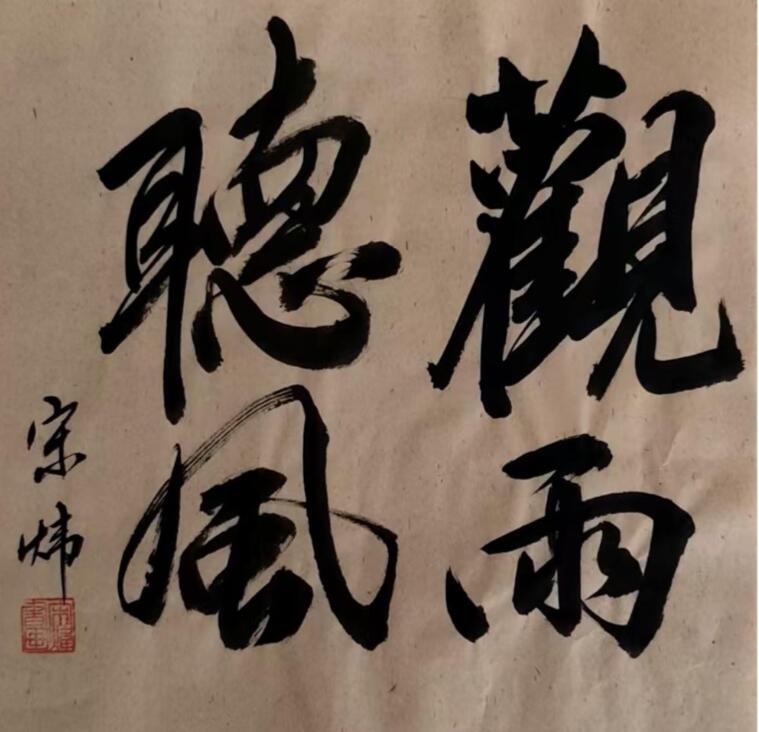 觀雨
聽風
宋炜